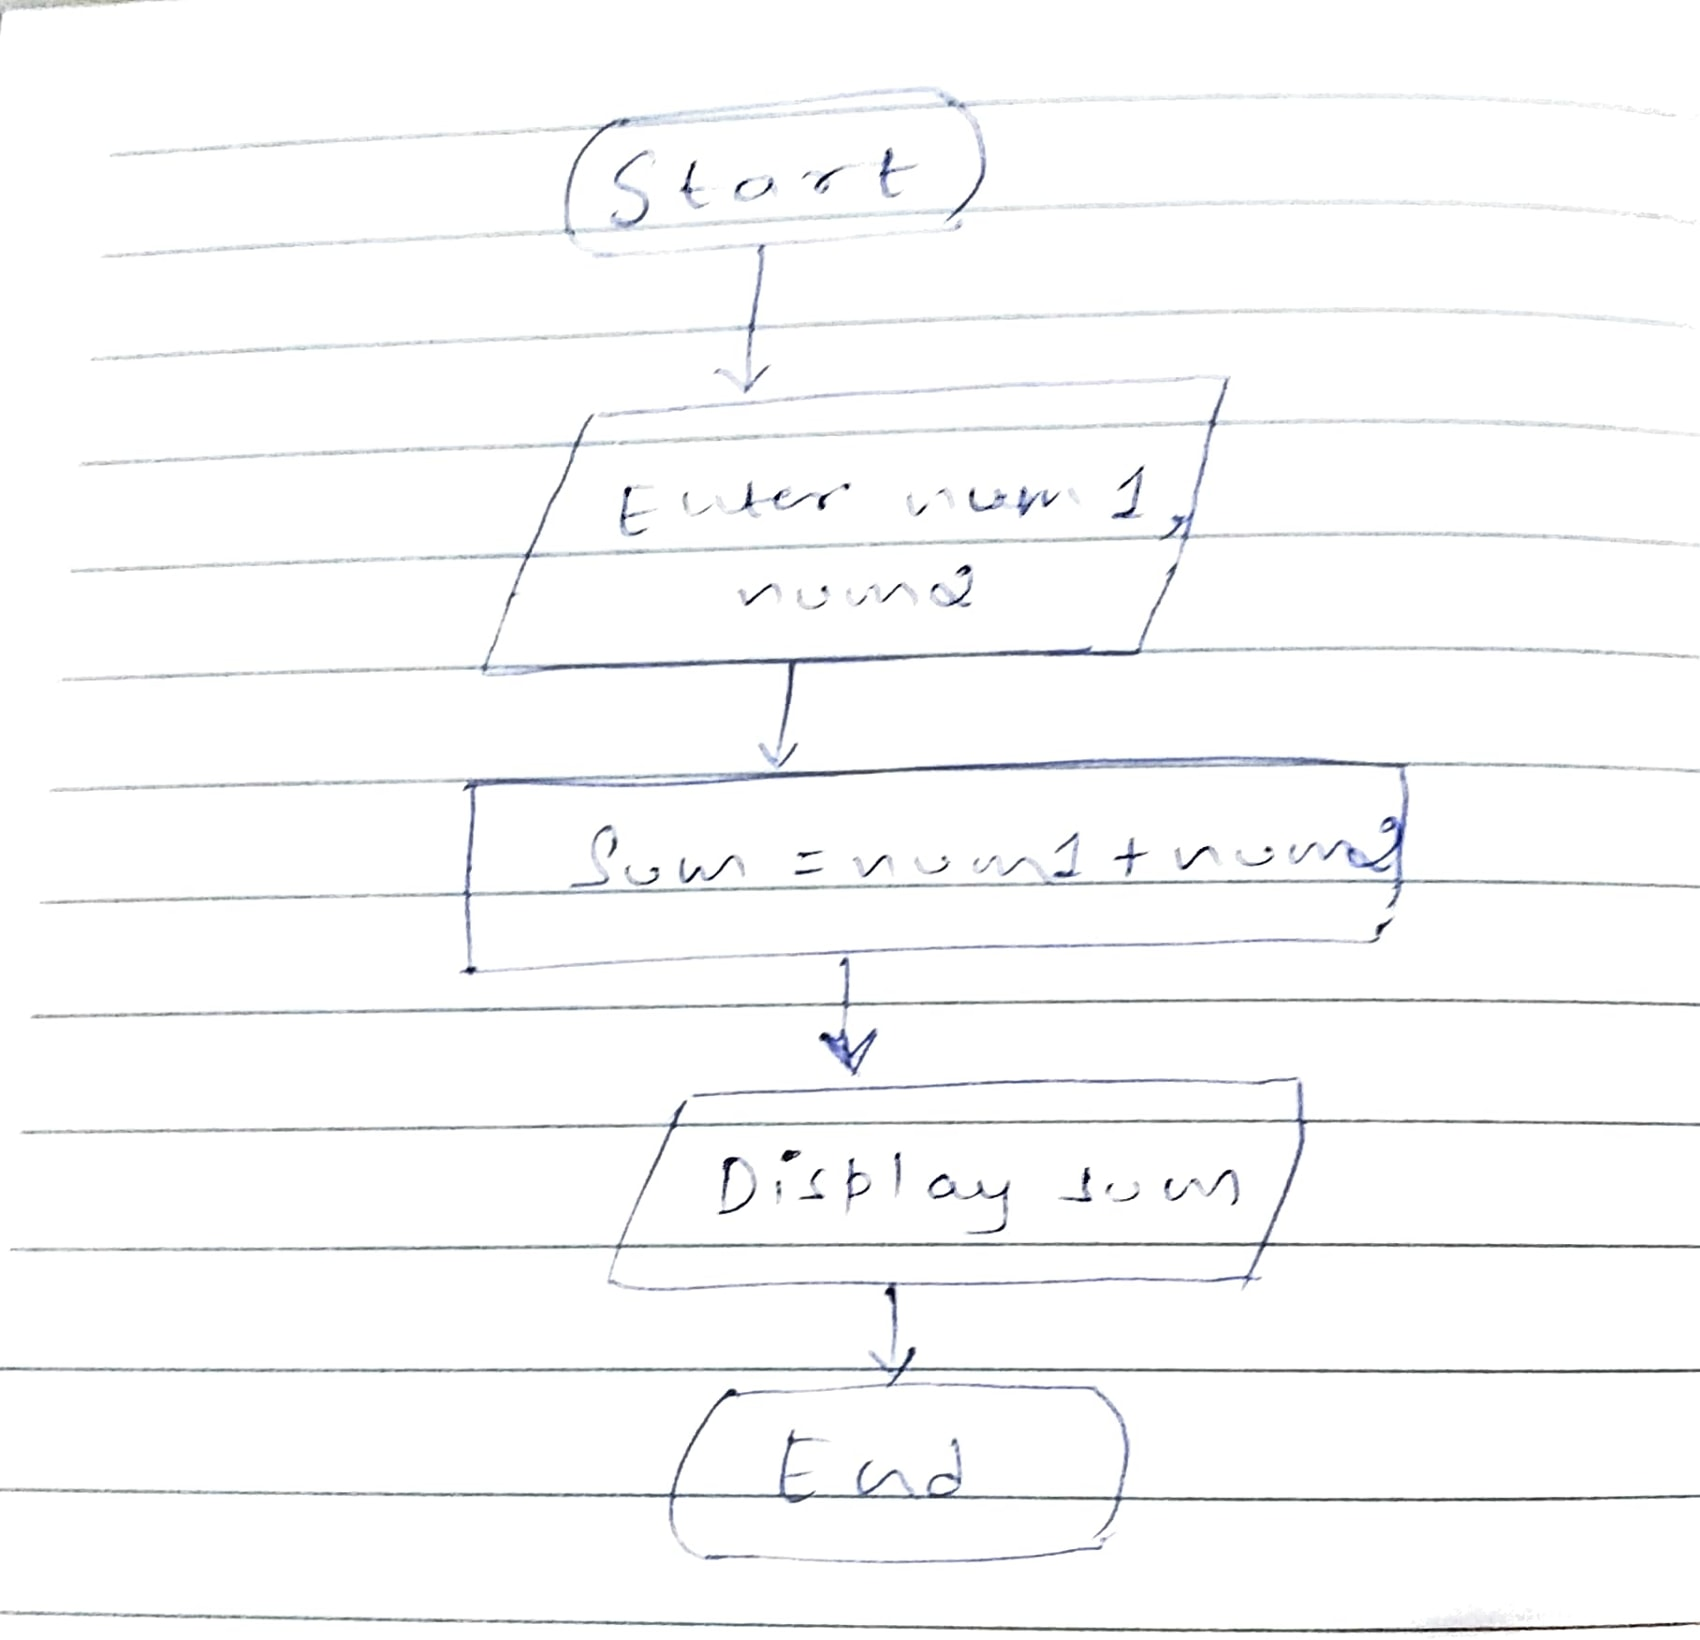 Start
Enter num1,
num2
Sum = num1 + num2
Display sum
End